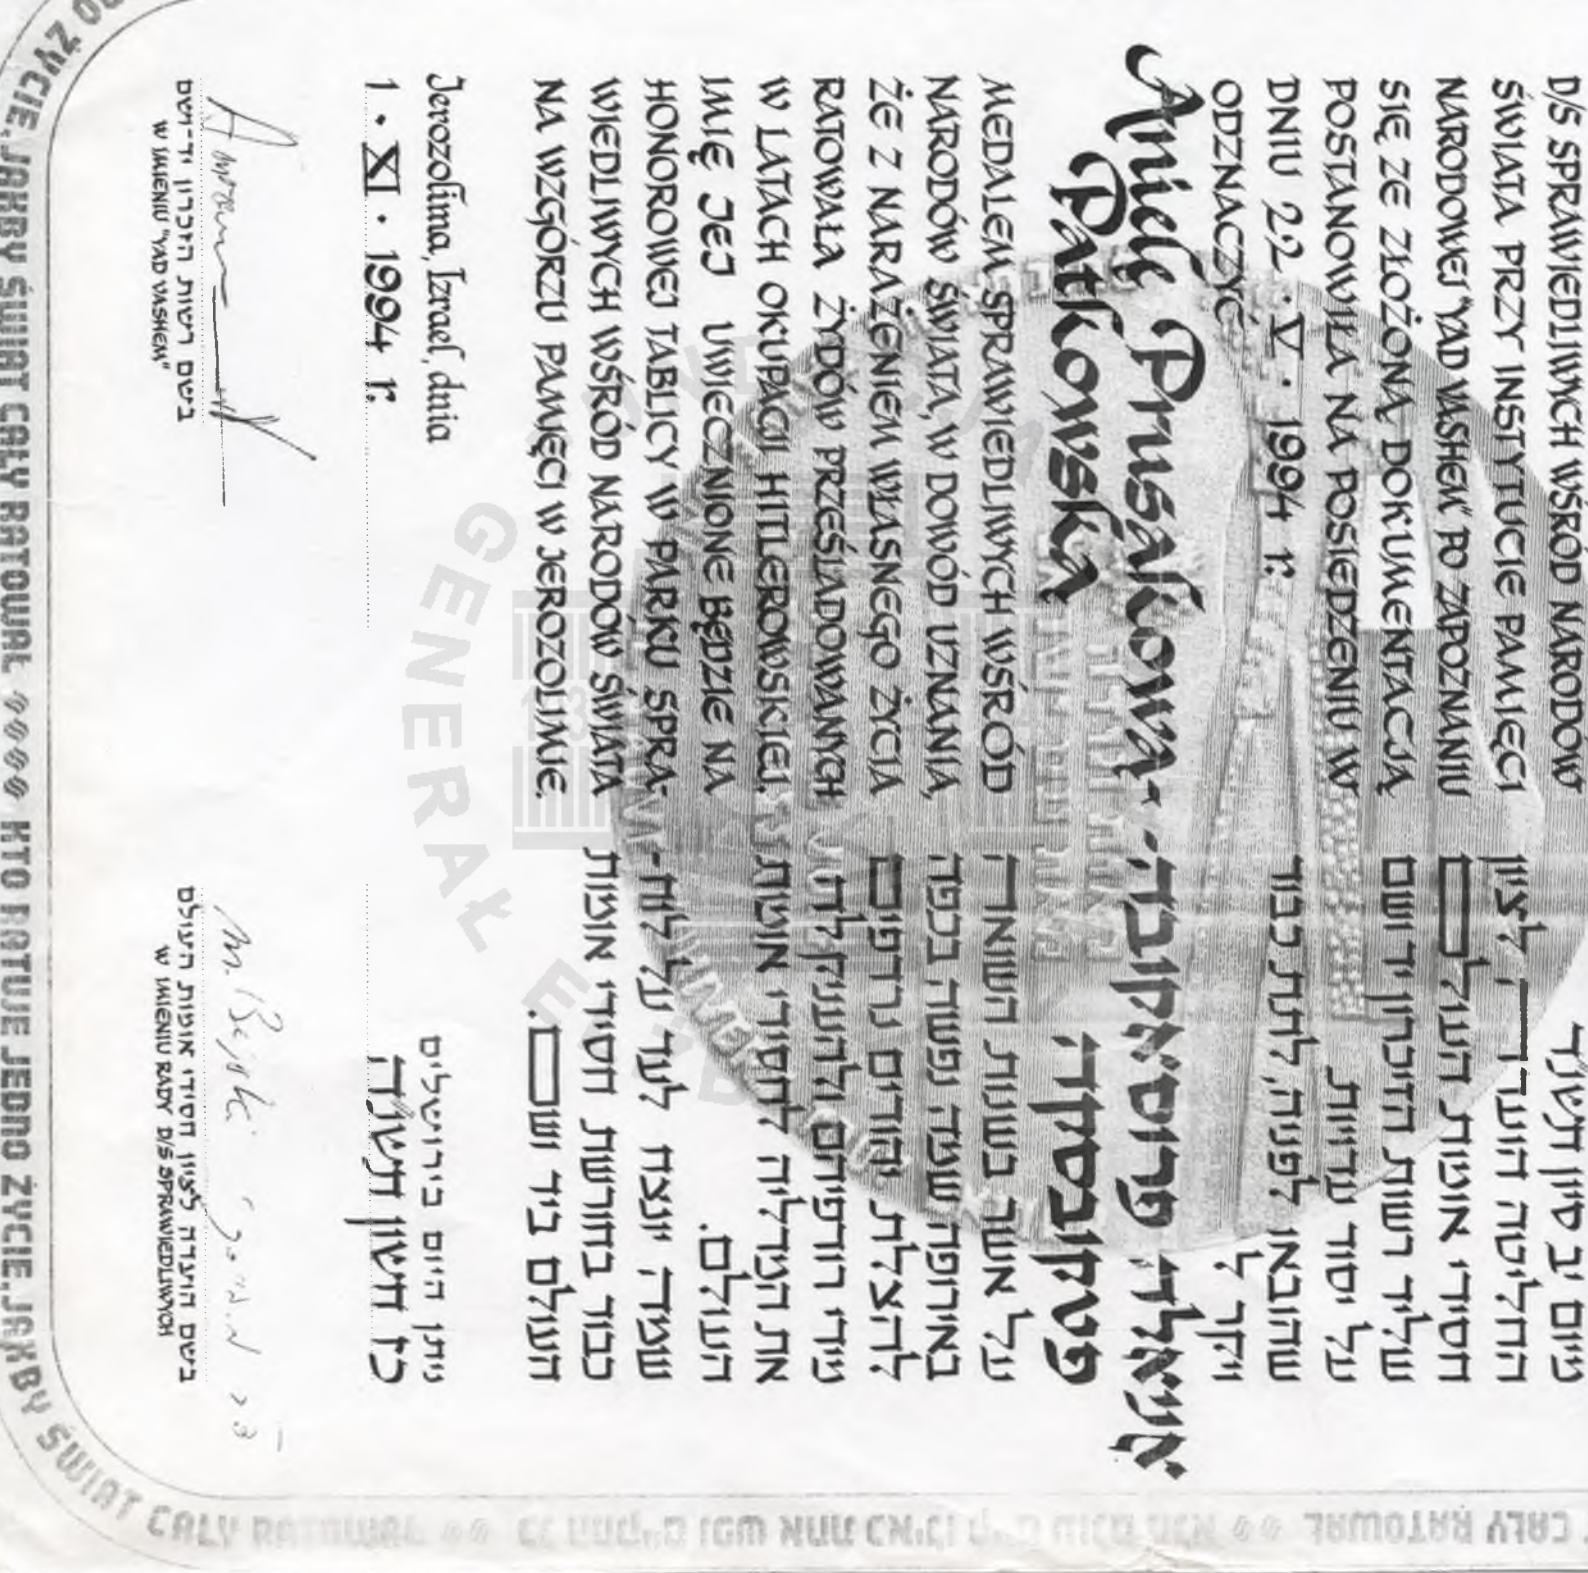 D/S SPRAWIEDLIWYCH WŚRÓD NARODÓW
ŚWIATA PRZY INSTYTUCIE PAMIĘCI
NARODOWEJ "YAD VASHEM" PO ZAPOZNANIU
SIĘ ZE ZŁOŻONĄ DOKUMENTACJĄ
POSTANOWIŁA NA POSIEDZENIU W
DNIU 22 · V · 1994 r.
ODZNACZYĆ
Anielę Prusakową-
Patkowską
MEDALEM SPRAWIEDLIWYCH WŚRÓD
NARODÓW ŚWIATA, W DOWÓD UZNANIA,
ŻE Z NARAŻENIEM WŁASNEGO ŻYCIA
RATOWAŁA ŻYDÓW PRZEŚLADOWANYCH
W LATACH OKUPACJI HITLEROWSKIEJ.
IMIĘ JEJ UWIECZNIONE BĘDZIE NA
HONOROWEJ TABLICY W PARKU SPRA-
WIEDLIWYCH WŚRÓD NARODÓW ŚWIATA
NA WZGÓRZU PAMIĘCI W JEROZOLIMIE.
Jerozolima, Izrael, dnia
1 · XI · 1994 r.
בשם רשות הזכרון יד־ושם
W IMIENIU "YAD VASHEM"
ביום יב סיון תשנ"ד
החליטה הועדה לציון
חסידי אומות העולם
שליד רשות הזכרון יד ושם
על יסוד עדויות
שהובאו לפניה, לתת כבוד
ויקר ל
אניאלה פרוסאקובה-
פטקובסקה
על אשר בשנות השואה
באירופה שמה נפשה בכפה
להצלת יהודים נרדפים
מידי רודפיהם, ולהעניק לה
את המדליה לחסידי אומות
העולם.
שמה יונצח לעד על לוח-
כבוד בחורשת חסידי אומות
העולם ביד ושם.
ניתן היום בירושלים
כז חשון תשנ"ה
בשם הועדה לציון חסידי אומות העולם
W IMIENIU RADY D/S SPRAWIEDLIWYCH
ŻYCIE, JAKBY ŚWIAT CAŁY RATOWAŁ KTO RATUJE JEDNO ŻYCIE, JAKBY ŚWIAT CAŁY RATOWAŁ
CAŁY RATOWAŁ
GENERAŁ